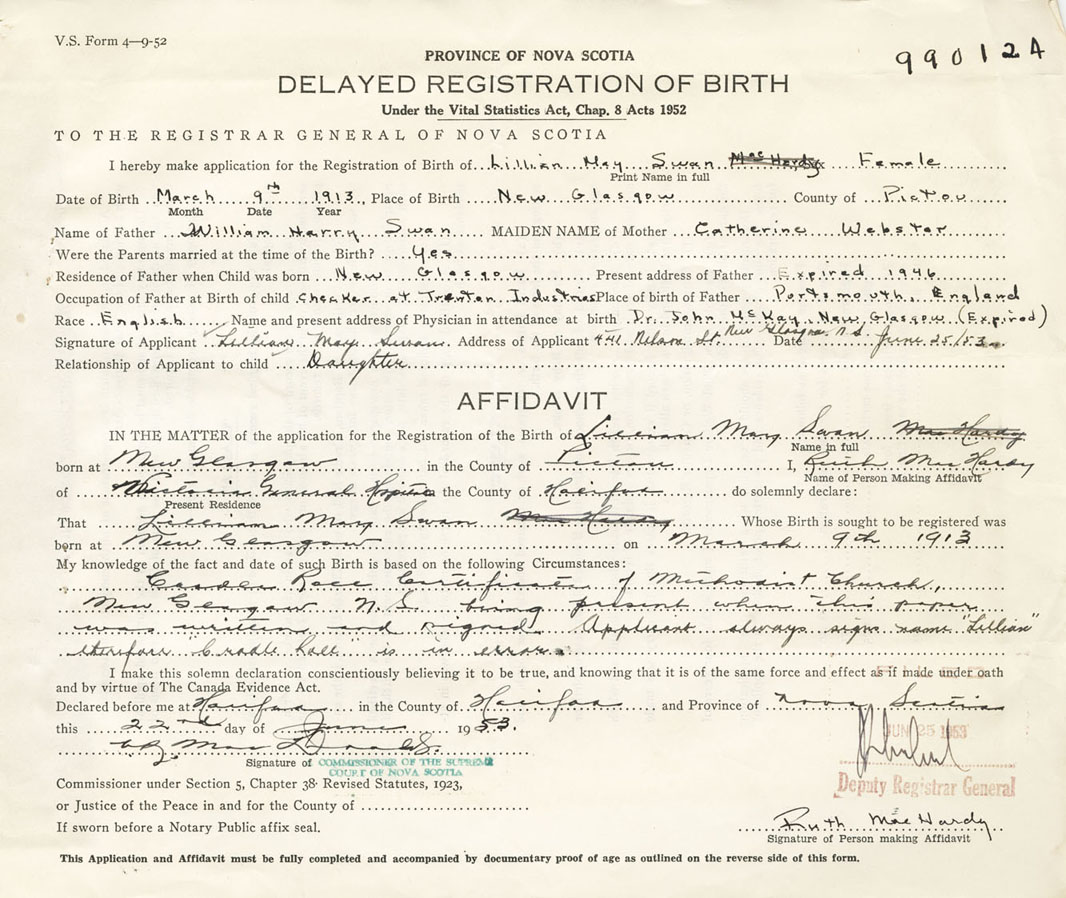 V.S. Form 4—9-52
990124
PROVINCE OF NOVA SCOTIA
DELAYED REGISTRATION OF BIRTH
Under the Vital Statistics Act, Chap. 8 Acts 1952
TO THE REGISTRAR GENERAL OF NOVA SCOTIA
I hereby make application for the Registration of Birth of Lillian May Swan MacHardy Female
Print Name in full
Date of Birth March 9th 1913, Place of Birth New Glasgow County of Pictou
Month Date Year
Name of Father William Harry Swan MAIDEN NAME of Mother Catherine Webster
Were the Parents married at the time of the Birth? Yes
Residence of Father when Child was born New Glasgow Present address of Father Expired 1946
Occupation of Father at Birth of child Checker at Trenton Industries Place of birth of Father Portsmouth, England
Race English Name and present address of Physician in attendance at birth Dr. John McKay, New Glasgow (Expired)
Signature of Applicant Lillian May Swan Address of Applicant 441 Nelson St. New Glasgow N.S. Date June 25/53
Relationship of Applicant to child Daughter
AFFIDAVIT
IN THE MATTER of the application for the Registration of the Birth of Lillian May Swan MacHardy
Name in full
born at New Glasgow in the County of Pictou I, Ruth MacHardy
Name of Person Making Affidavit
of Victoria General Hospital the County of Halifax do solemnly declare:
Present Residence
That Lillian May Swan MacHardy Whose Birth is sought to be registered was
born at New Glasgow on March 9th 1913
My knowledge of the fact and date of such Birth is based on the following Circumstances:
Certificate of Methodist Church,
New Glasgow N.S. being present when this paper
was written and signed. Applicant always signs name "Lillian"
therefore "Cradle Roll" is in error.
I make this solemn declaration conscientiously believing it to be true, and knowing that it is of the same force and effect as if made under oath
and by virtue of The Canada Evidence Act.
Declared before me at Halifax in the County of Halifax and Province of Nova Scotia
this 22nd day of June 1953.
JUN 25 1953
Signature of COMMISSIONER OF THE SUPREME
COURT OF NOVA SCOTIA
Commissioner under Section 5, Chapter 38 Revised Statutes, 1923,
Deputy Registrar General
or Justice of the Peace in and for the County of
If sworn before a Notary Public affix seal.
Ruth MacHardy
Signature of Person making Affidavit
This Application and Affidavit must be fully completed and accompanied by documentary proof of age as outlined on the reverse side of this form.